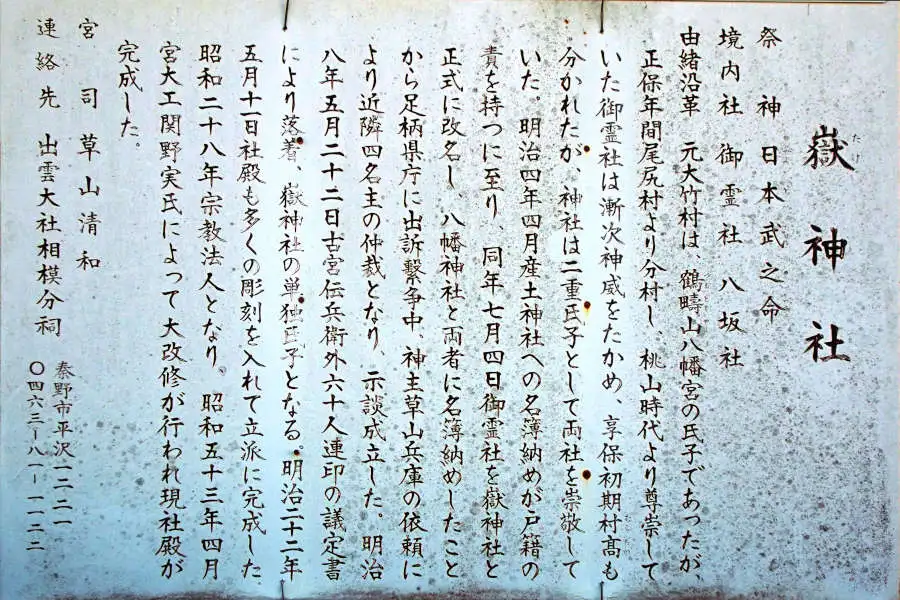 嶽神社
たけ
祭神日本武之命
境内社御霊社八坂社
由緒沿革　元大竹村は、鶴疇山八幡宮の氏子であったが、
正保年間尾尻村より分村し、桃山時代より尊崇して
いた御霊社は漸次神威をたかめ、享保初期村高も
分かれたが、神社は二重氏子として両社を崇敬して
いた。明治四年四月産土神社への名簿納めが戸籍の
責を持つに至り、同年七月四日御霊社を嶽神社と
正式に改名し、八幡神社と両者に名簿納めしたこと
から足柄県庁に出訴繫争中、神主草山兵庫の依頼に
より近隣四名主の仲裁となり、示談成立した。明治
八年五月二十二日古宮伝兵衛外六十人連印の議定書
により落着、嶽神社の単独氏子となる。明治二十二年
五月十一日社殿も多くの彫刻を入れて立派に完成した、
昭和二十八年宗教法人となり。昭和五十三年四月
宮大工関野実氏によって大改修が行われ現社殿が
完成した。
宮司草山清和
連絡先　出雲大社相模分祠
秦野市平沢一二二一
〇四六三ー八一ー一一二二